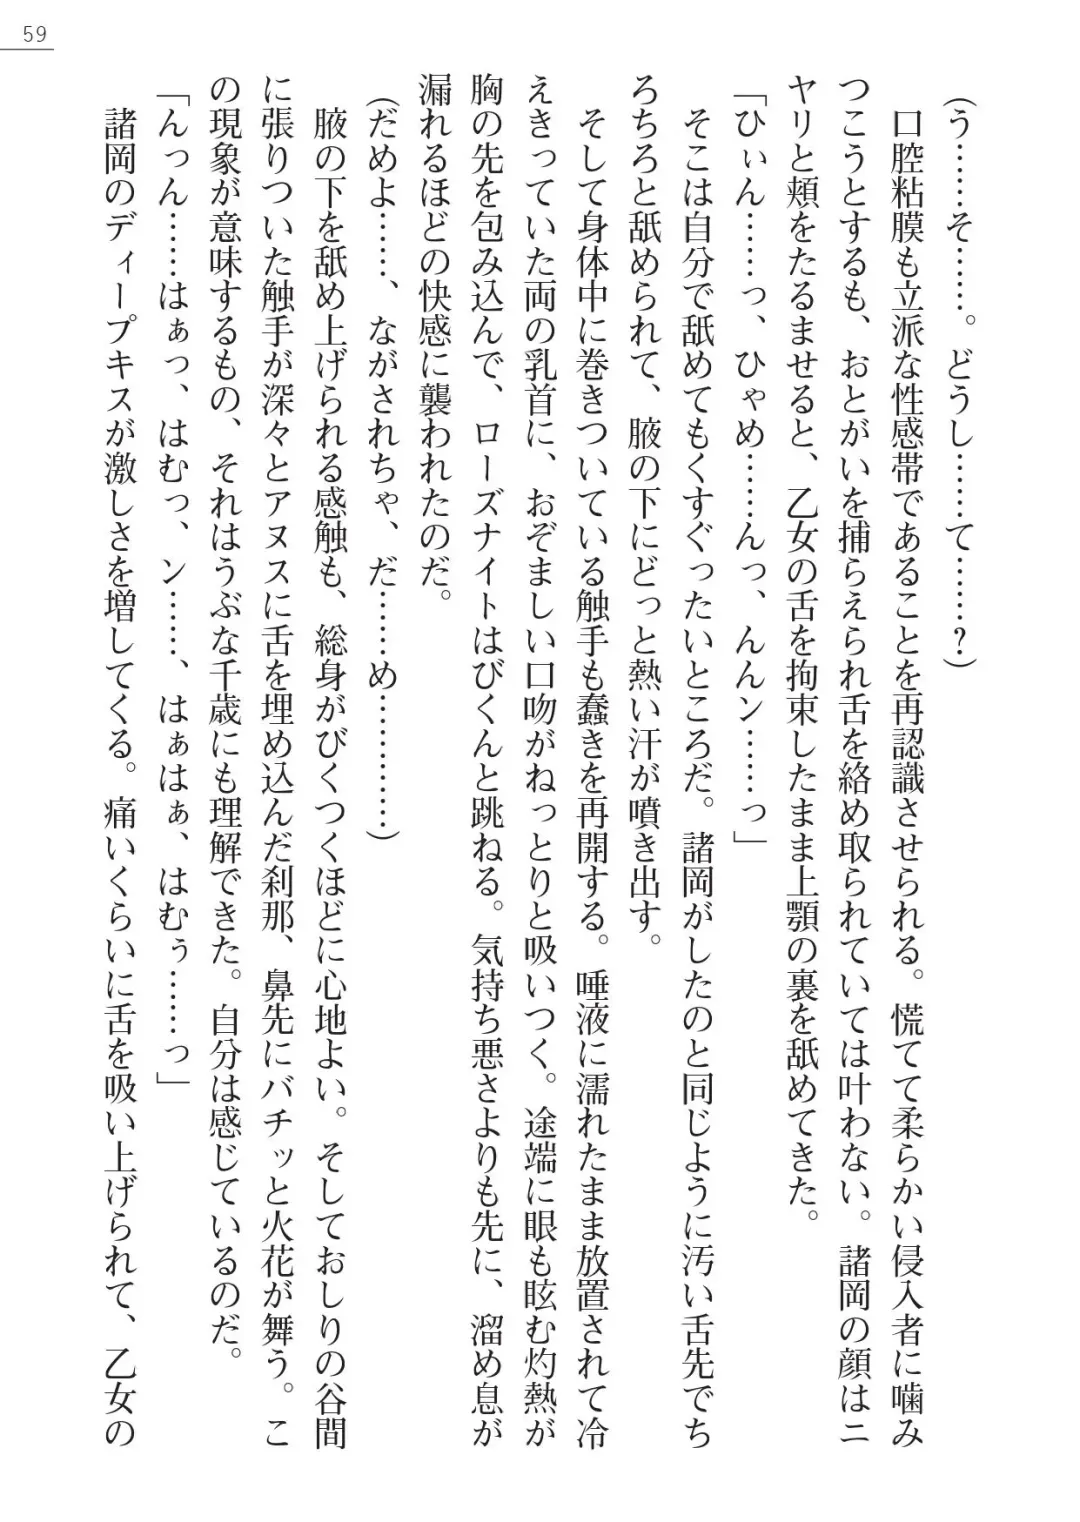 59
(う……そ……。どうし……て……?)
　口腔粘膜も立派な性感帯であることを再認識させられる。慌てて柔らかい侵入者に噛み
つこうとするも、おとがいを捕らえられ舌を絡め取られていては叶わない。諸岡の顔はニ
ヤリと頬をたるませると、乙女の舌を拘束したまま上顎の裏を舐めてきた。
「ひぃん……っ、ひゃめ……んっ、んんン……っ」
　そこは自分で舐めてもくすぐったいところだ。諸岡がしたのと同じように汚い舌先でち
ろちろと舐められて、腋の下にどっと熱い汗が噴き出す。
　そして身体中に巻きついている触手も蠢きを再開する。唾液に濡れたまま放置されて冷
えきっていた両の乳首に、おぞましい口吻がねっとりと吸いつく。途端に眼も眩む灼熱が
胸の先を包み込んで、ローズナイトはびくんと跳ねる。気持ち悪さよりも先に、溜め息が
漏れるほどの快感に襲われたのだ。
(だめよ……、ながされちゃ、だ……め…………)
　腋の下を舐め上げられる感触も、総身がびくつくほどに心地よい。そしておしりの谷間
に張りついた触手が深々とアヌスに舌を埋め込んだ刹那、鼻先にバチッと火花が舞う。こ
の現象が意味するもの、それはうぶな千歳にも理解できた。自分は感じているのだ。
「んっん……はぁっ、はむっ、ン……、はぁはぁ、はむぅ……っ」
　諸岡のディープキスが激しさを増してくる。痛いくらいに舌を吸い上げられて、乙女の